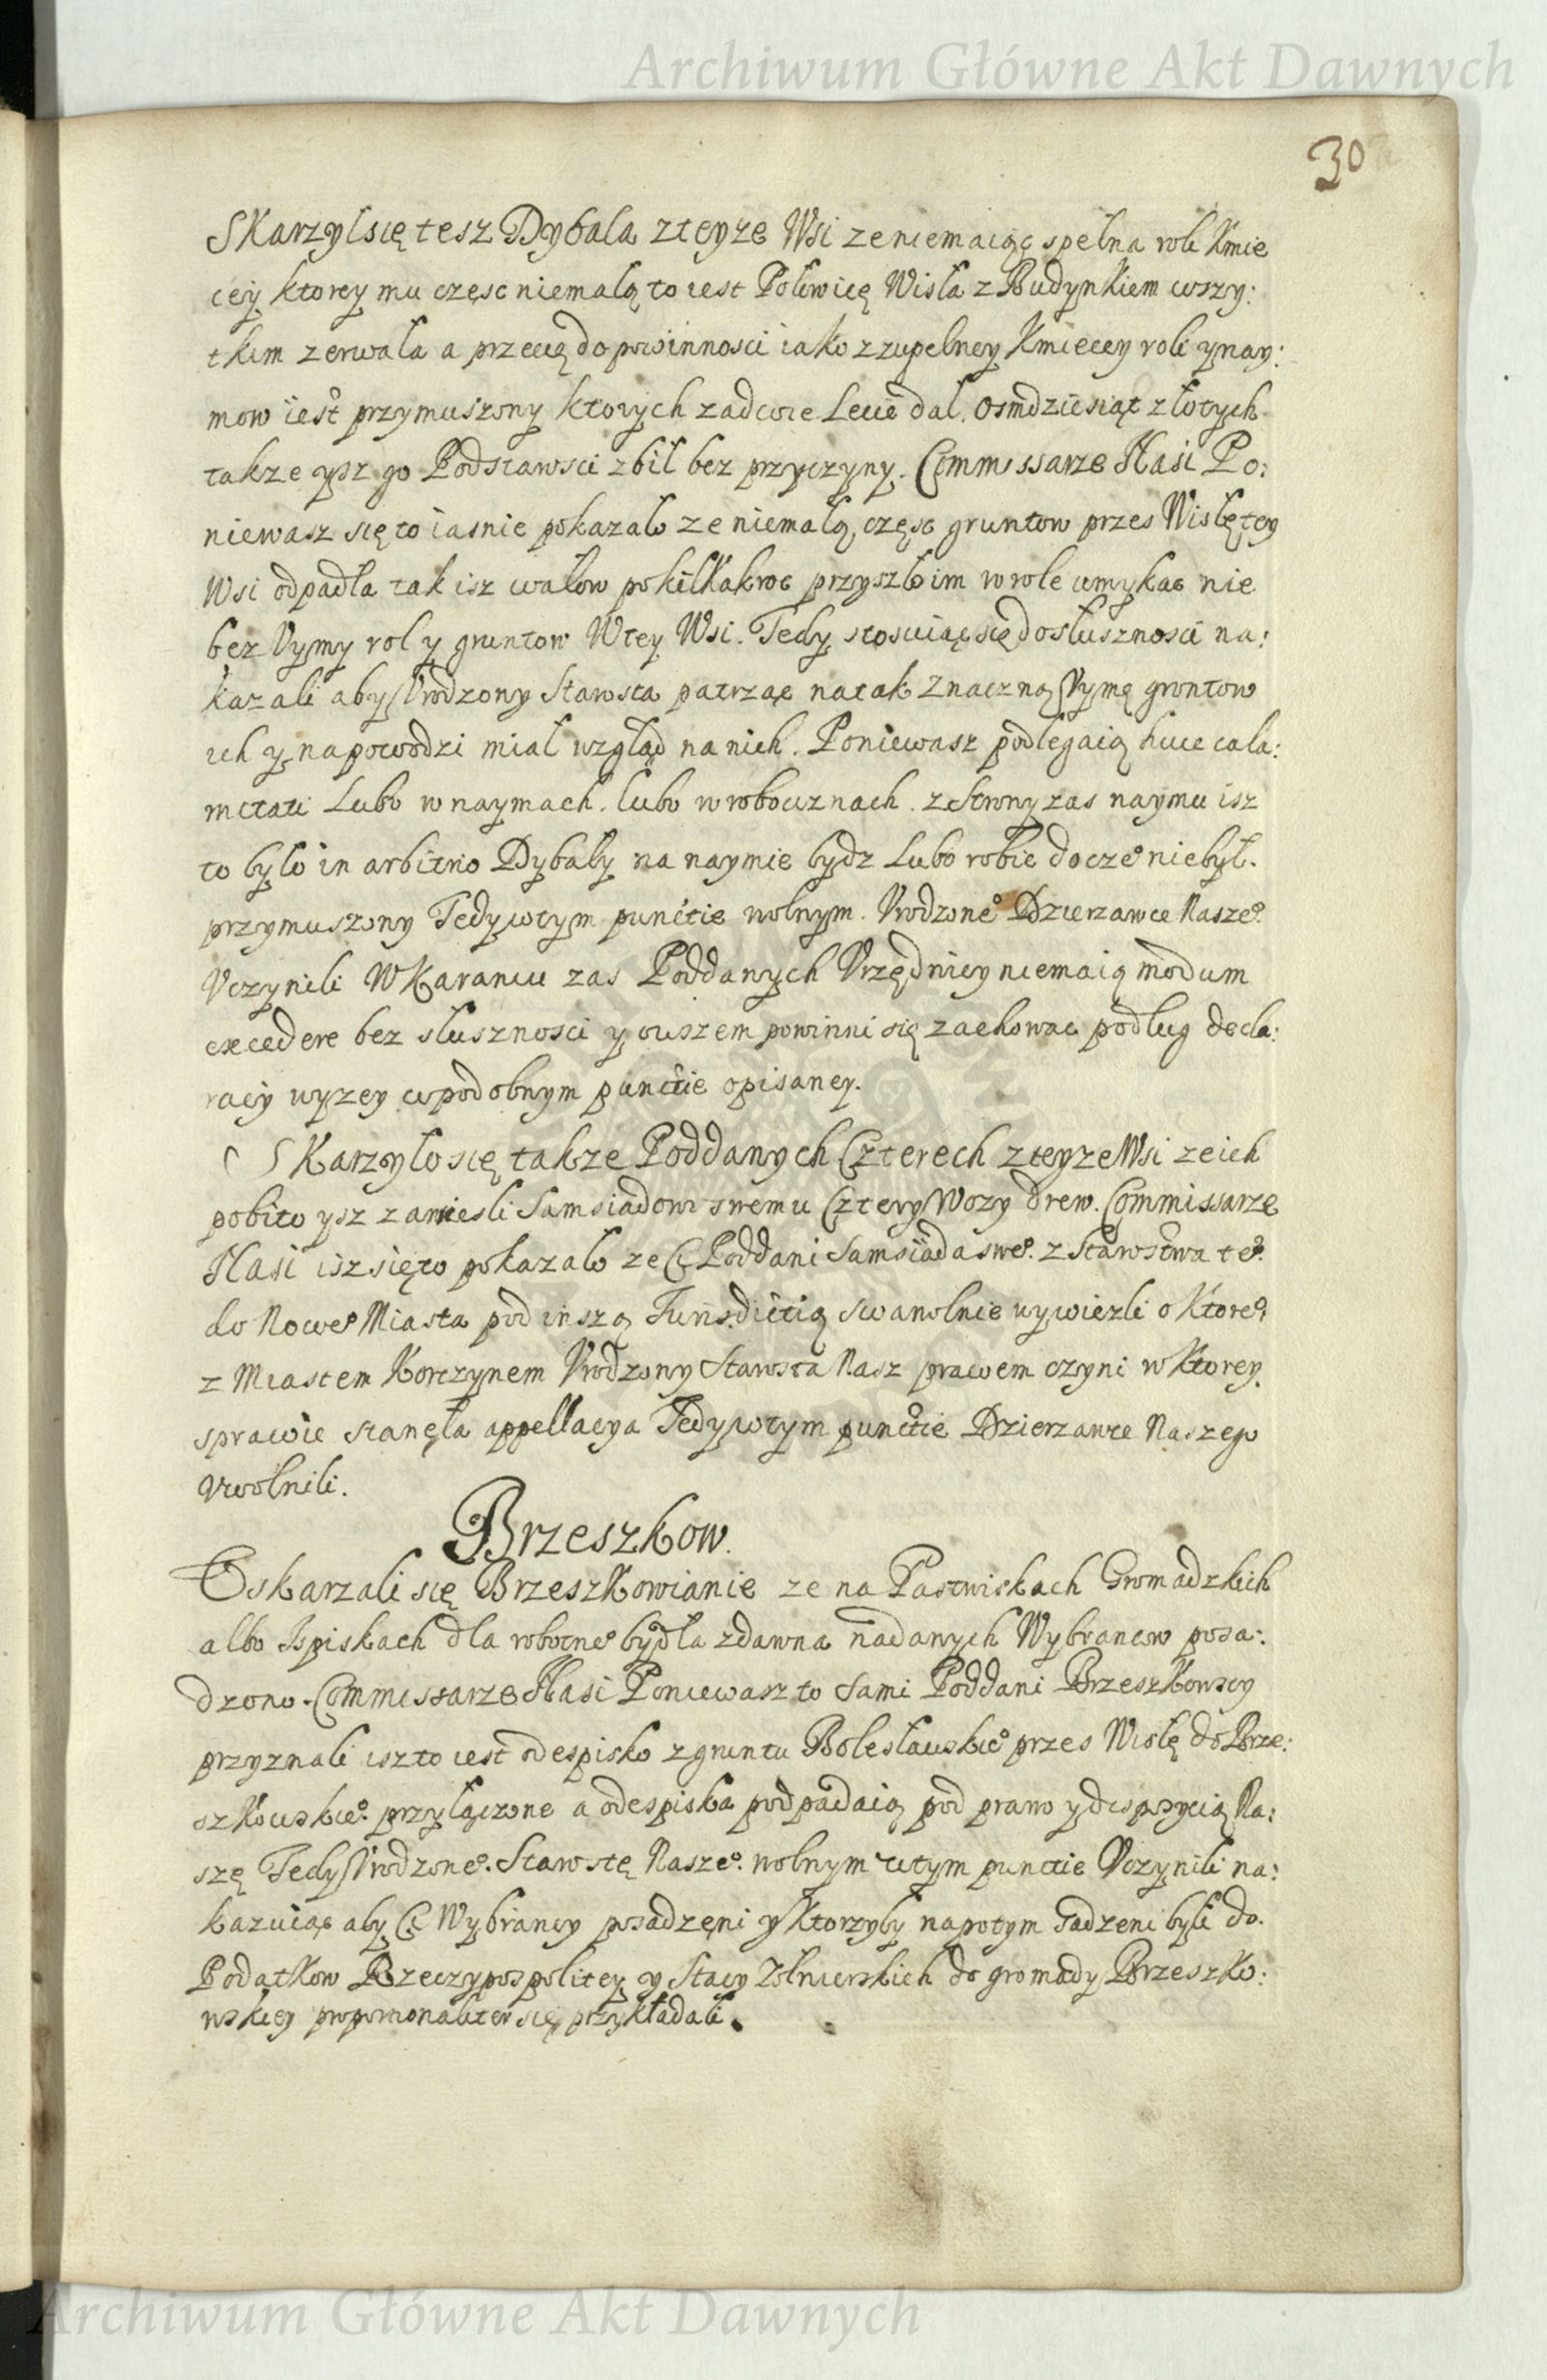 Archiwum Główne Akt Dawnych
30
Skarzył się tesz Dybala z teyze Wsi ze niemaiąc spełna roli Kmie
cey ktorey mu częsc niemałą to iest Połowicę Wisła z Budynkiem wszy:
tkim zerwała a przecię do powinnosci iako z zupełney Kmiecey roli y nay:
mow iest przymuszony ktorych za dwie Lecie dał. osmdziesiąt złotych
takze ysz go Podstarosci zbił bez przyczyny. Commissarze Nasi Po:
niewasz się to iasnie pokazało ze niemałą częsc gruntow przes Wisłę tey
Wsi odpadła tak isz wałow po kilkakroc przyszło im w role umykac nie
bez Vymy rol y gruntow W tey Wsi. Tedy stosuiąc się do słusznosci na:
kazali aby Vrodzony Starosta patrząc na tak znaczną Vymę grontow
ich y na powodzi miał wzgląd na nich. Poniewasz podlegaią huic cala:
mitati Lubo w naymach. lubo w robociznach. z Strony zas naymu isz
to było in arbitrio Dybały na naymie bydz Lubo robic do cze° niebył.
przymuszony Tedy w tym punctie wolnym. Vrodzone° Dzierzawce Nasze°.
Vczynili W Karaniu zas Poddanych Vrzędnicy niemaią modum
excedere bez słusznosci y owszem powinni się zachowac podług decla:
racij wyzey w podobnym punctie opisaney.
Skarzyło się takze Poddanych Czterech z teyze Wsi ze ich
pobito ysz zawiesli Samsiadowi swemu Cztery Wozy drew. Commissarze
Nasi isz się to pokazało ze Ci Poddani Samsiada swe°. z Starostwa te°.
do Nowe° Miasta pod inszą Iurisdictią swawolnie wywiezli o ktore°.
z Miastem Korczynem Vrodzony Starosta Nasz prawem czyni w ktorey
sprawie stanęła appellacya Tedy w tym punctie Dzierzawce Naszego
Vwolnili.
Brzeszkow.
Oskarzali się Brzeszkowianie ze na Pastwiskach Gromadzkich
albo Ispiskach dla robotne° bydła zdawna nadanych Wybrancow posa:
dzono. Commissarze Nasi Poniewasz to Sami Poddani Brzeszkowscy
przyznali isz to iest odespisko z gruntu Bolesławskie° przes Wisłę do Brze:
szkowskie°. przyłączone a odespiska podpadaią pod prawo y dispozycią Na:
szę Tedy Vrodzone°. Starostę Nasze°. wolnym w tym punctie Vczynili na:
kazuiąc aby Ci Wybrancy posadzeni y ktorzyby napotym sadzeni byli do.
Podatkow Rzeczypospolitey y Stacy Zołnierskich do gromady Brzeszko:
wskiey proporcionaliter się przykładali.
Archiwum Główne Akt Dawnych